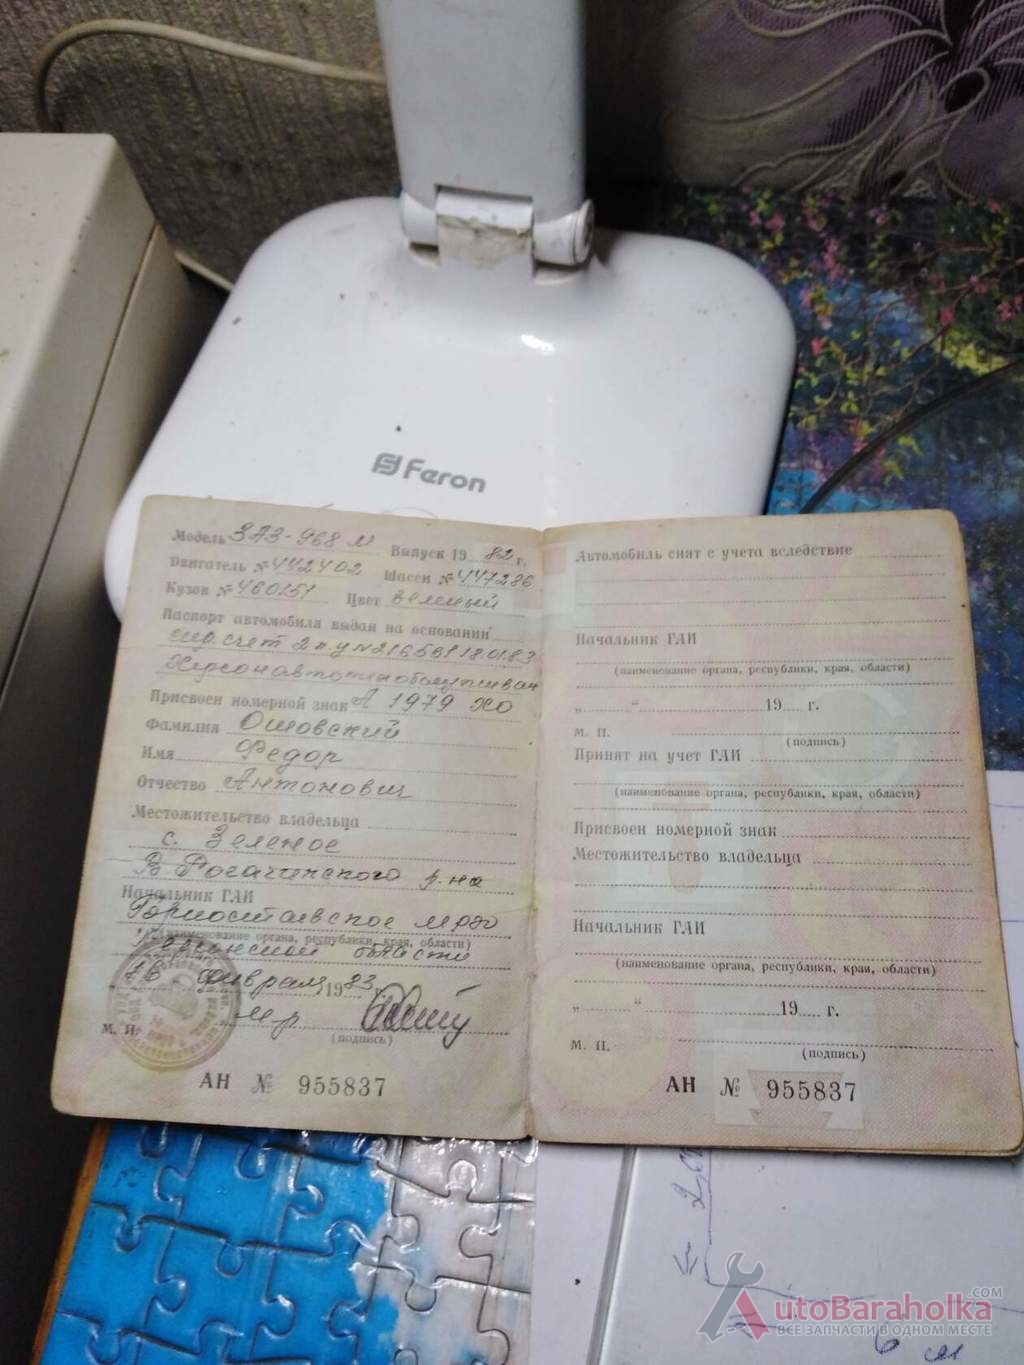 Feron
Модель ЗАЗ-968 М Выпуск 19 82 г.
Двигатель № 442402 Шасси № 447286
Кузов № 460151 Цвет зеленый
Паспорт автомобиля выдан на основании
счет
Присвоен номерной знак 1979 ХО
Фамилия Ошовский
Имя Федор
Отчество Антонович
Местожительство владельца
с. Зеленое
В. Рогачикского р-на
Начальник ГАИ
Горностаевское мрэо
(наименование органа, республики, края, области)
Херсонской области
16 февраля 1983
М. П. (подпись)
АН № 955837
Автомобиль снят с учета вследствие
Начальник ГАИ
(наименование органа, республики, края, области)
„ “ 19 г.
М. П.
(подпись)
Принят на учет ГАИ
(наименование органа, республики, края, области)
Присвоен номерной знак
Местожительство владельца
Начальник ГАИ
(наименование органа, республики, края, области)
„ “ 19 г.
М. П.
(подпись)
АН № 955837
AutoBaraholka.COM
ВСЕ ЗАПЧАСТИ В ОДНОМ МЕСТЕ